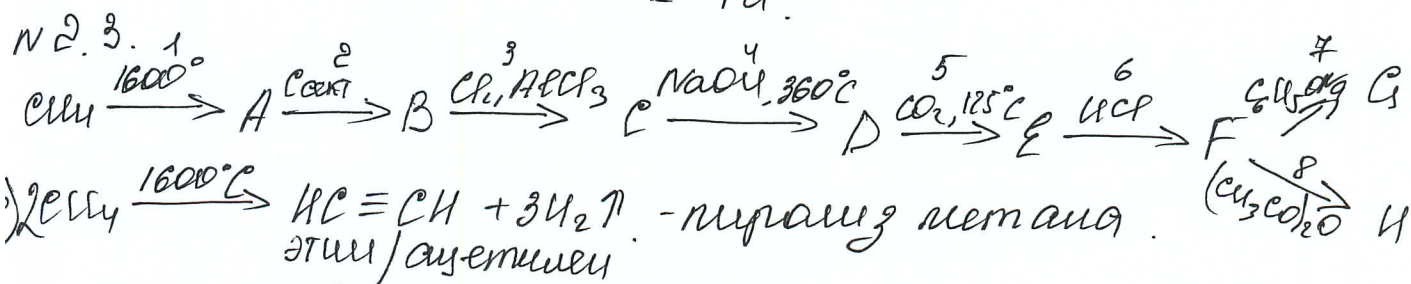 N 2.3.
CH₄ —1600°→ A —C акт→ B —Cl₂, AlCl₃→ C —NaOH, 360°C→ D —CO₂, 125°C→ E —HCl→ F —C₆H₅OH→ G
1 2 3 4 5 6 7
8 (CH₃CO)₂O H
)2CH₄ —1600°C→ HC≡CH + 3H₂↑ - пиролиз метана.
этин/ацетилен